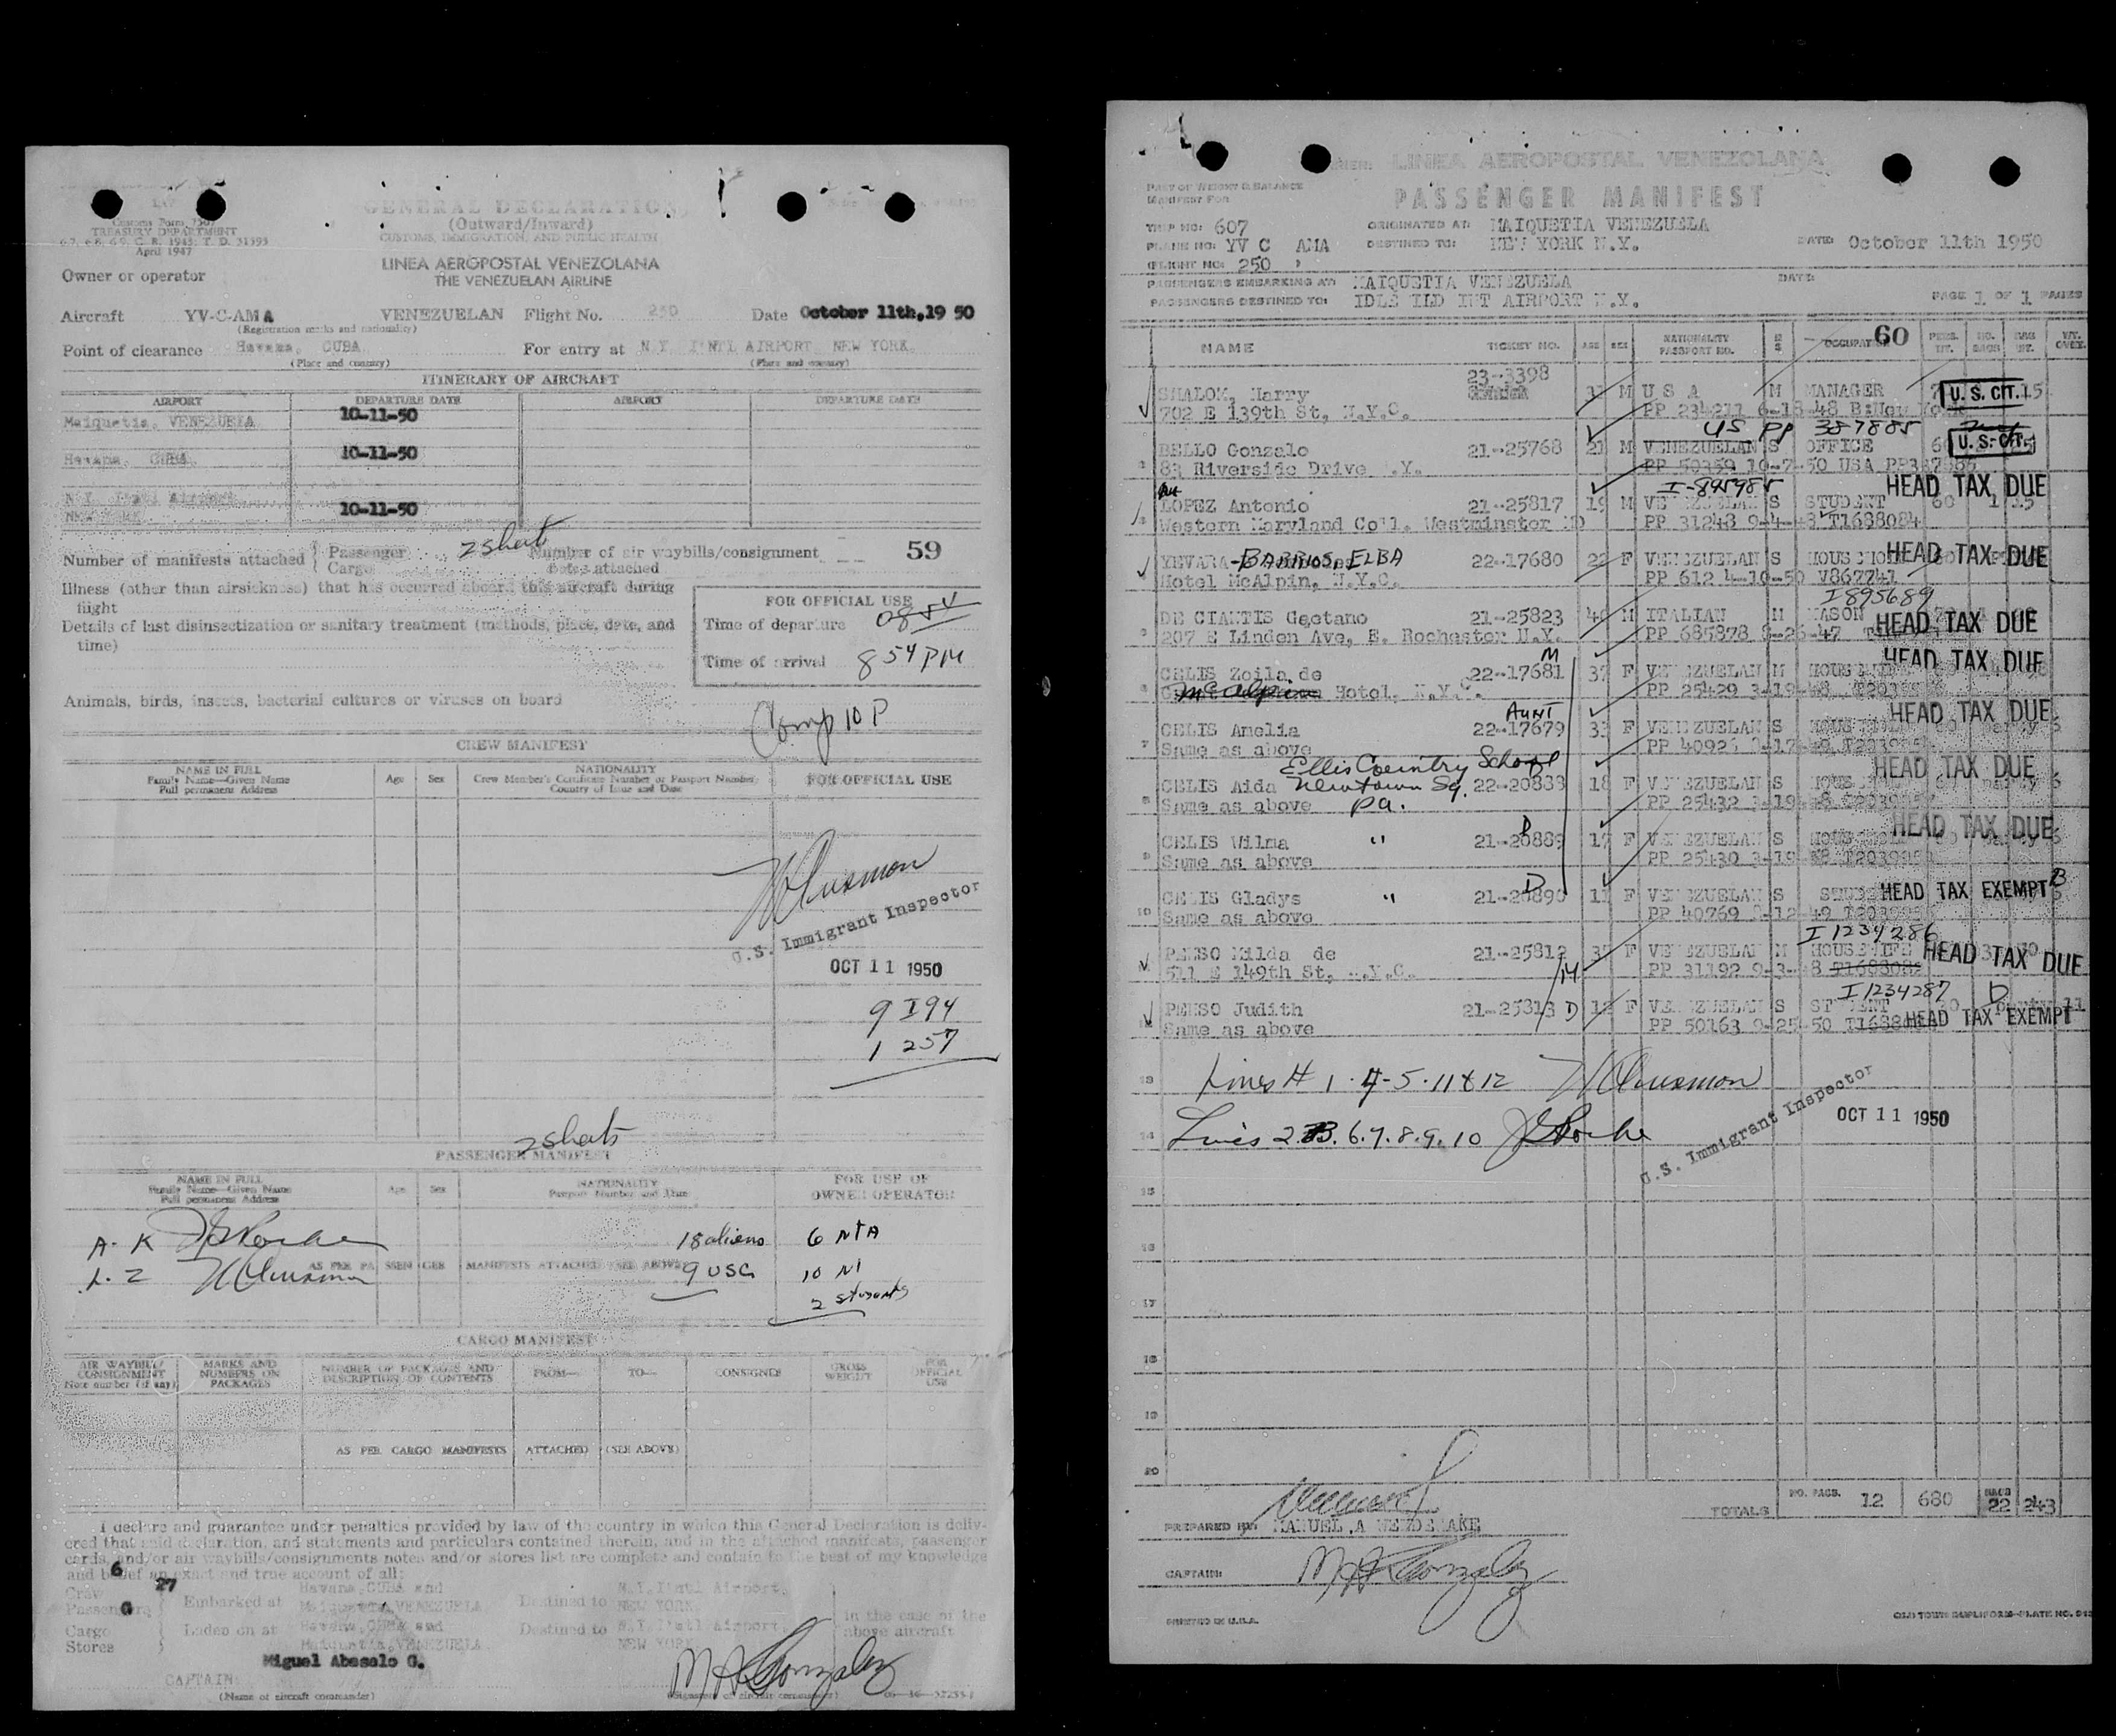 Customs Form 7507
TREASURY DEPARTMENT
April 1947
GENERAL DECLARATION
(Outward/Inward)
CUSTOMS, IMMIGRATION, AND PUBLIC HEALTH
LINEA AEROPOSTAL VENEZOLANA
THE VENEZUELAN AIRLINE
Owner or operator
Aircraft YV-C-AMA VENEZUELAN Flight No. 250 Date October 11th, 19 50
(Registration marks and nationality)
Point of clearance Havana, CUBA. For entry at N.Y. I'NTL AIRPORT NEW YORK.
(Place and country) (Place and country)
ITINERARY OF AIRCRAFT
AIRPORT DEPARTURE DATE AIRPORT DEPARTURE DATE
Maiquetia, VENEZUELA 10-11-50
Havana, CUBA. 10-11-50
10-11-50
Number of manifests attached Passenger 2 sheets Number of air waybills/consignment -- 59
Cargo notes attached
Illness (other than airsickness) that has occurred aboard this aircraft during
flight
Details of last disinsectization or sanitary treatment (methods, place, date, and
time)
FOR OFFICIAL USE
Time of departure 0854
Time of arrival 854 PM
Animals, birds, insects, bacterial cultures or viruses on board
Comp 10 P
CREW MANIFEST
NAME IN FULL
Family Name—Given Name
Full permanent Address
Age Sex
NATIONALITY
Crew Member's Certificate Number or Passport Number
Country of Issue and Date
FOR OFFICIAL USE
U.S. Immigrant Inspector
OCT 11 1950
9 I94
1 257
2 sheets
PASSENGER MANIFEST
NAME IN FULL
Family Name—Given Name
Full permanent Address
Age Sex
NATIONALITY
Passport Number and Date
FOR USE OF
OWNER OPERATOR
A-K 18 aliens 6 NTA
AS PER PASSENGER MANIFESTS ATTACHED (SEE ABOVE)
L-Z 9 USC 10 NI
2 students
CARGO MANIFEST
AIR WAYBILL/
CONSIGNMENT
Note number (if any)
MARKS AND
NUMBERS ON
PACKAGES
NUMBER OF PACKAGES AND
DESCRIPTION OF CONTENTS
FROM— TO— CONSIGNEE
GROSS
WEIGHT
FOR
OFFICIAL
USE
AS PER CARGO MANIFESTS ATTACHED (SEE ABOVE)
I declare and guarantee under penalties provided by law of the country in which this General Declaration is deliv-
ered that said declaration, and statements and particulars contained therein, and in the attached manifests, passenger
cards, and/or air waybills/consignments notes and/or stores list are complete and contain to the best of my knowledge
and belief an exact and true account of all:
Crew 6
Passengers 27 Embarked at Havana, CUBA and Maiquetia, VENEZUELA Destined to N.Y. I'ntl Airport, NEW YORK.
Cargo
Stores Laden on at Havana, CUBA and Maiquetia, VENEZUELA. Destined to N.Y. I'ntl Airport, NEW YORK
in the case of the
above aircraft
Miguel Abasalo G.
CAPTAIN:
(Name of aircraft commander) (Signature of aircraft commander)
LINEA AEROPOSTAL VENEZOLANA
PART OF WEIGHT & BALANCE
MANIFEST FOR
PASSENGER MANIFEST
TRIP NO: 607 ORIGINATED AT: MAIQUETIA VENEZUELA
PLANE NO: YV C AMA DESTINED TO: NEW YORK N.Y. DATE: October 11th 1950
FLIGHT NO: 250
PASSENGERS EMBARKING AT: MAIQUETIA VENEZUELA DATE:
PASSENGERS DESTINED TO: IDLE ILD INT AIRPORT N.Y. PAGE 1 OF 1 PAGES
60
NAME TICKET NO. AGE SEX NATIONALITY PASSPORT NO. OCCUPATION
23-3398
SHALOM, Harry M U S A M MANAGER U. S. CIT. 15
702 E 139th St, N.Y.C. PP 234211 6-18-48
US PP 387885
BELLO Gonzalo 21-25768 21 M VENEZUELAN S OFFICE U. S. CIT.
83 Riverside Drive N.Y. PP 50359 10-7-50 USA
I-895985 HEAD TAX DUE
LOPEZ Antonio 21-25817 19 M VENEZUELAN S STUDENT 60 1 15
Western Maryland Coll. Westminster MD PP 31248 T1688084
YEVARA-BARRIOS, ELBA 22-17680 22 F VENEZUELAN S HEAD TAX DUE
Hotel McAlpin, N.Y.C. PP 612 4-10-50 V867741
I895689
DE CIANTIS Gaetano 21-25823 M ITALIAN M MASON HEAD TAX DUE
207 E Linden Ave, E. Rochester N.Y. PP 685878 8-26-47
M
CELIS Zoila de 22-17681 37 F VENEZUELAN M HEAD TAX DUE
McAlpin Hotel, N.Y.C. PP 25429
AUNT
CELIS Amelia 22-17679 33 F VENEZUELAN S HEAD TAX DUE
Same as above
Ellis Country School
CELIS Aida Newtown Sq. 22-20888 18 F VENEZUELAN S HEAD TAX DUE
Same as above Pa. PP 25432
D
CELIS Wilma " 21-20889 17 F VENEZUELAN S HEAD TAX DUE
Same as above PP 25430
D
CELIS Gladys " 21-20890 F VENEZUELAN S HEAD TAX EXEMPT
Same as above PP 40769
I1234286
PENSO Hilda de 21-25812 F VENEZUELAN M HOUSEWIFE HEAD TAX DUE
511 E 149th St, N.Y.C. M PP 31192
I1234287 D
PENSO Judith 21-25813 D 12 F VENEZUELAN S STUDENT
Same as above PP 50163 9-25-50 HEAD TAX EXEMPT
13 Lines # 1-4-5-11 & 12
14 Lines 2.3.6.7.8.9.10
U.S. Immigrant Inspector
OCT 11 1950
15
16
17
18
19
20
TOTALS NO. PAGS. 12 680 BAGS 22 243
PREPARED BY: MANUEL A
CAPTAIN:
PRINTED IN U.S.A.